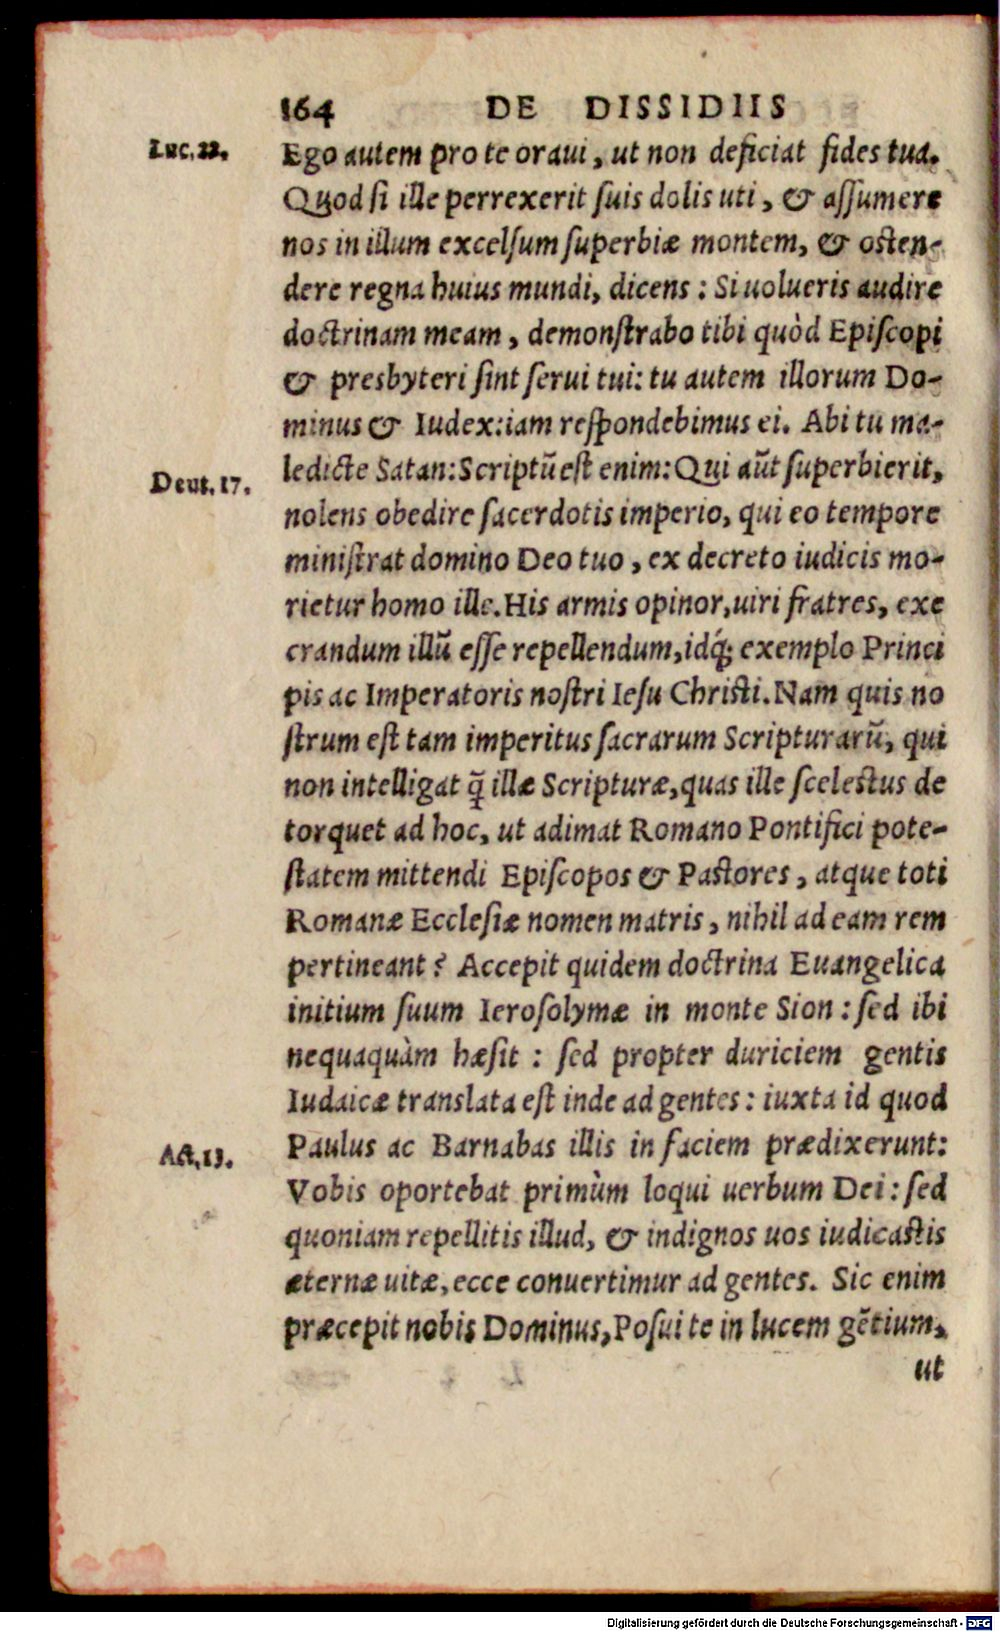 164 DE DISSIDIIS
Luc. 22. Ego autem pro te oraui, ut non deficiat fides tua.
Quod si ille perrexerit suis dolis uti, & assumere
nos in illum excelsum superbiæ montem, & osten-
dere regna huius mundi, dicens: Si uolueris audire
doctrinam meam, demonstrabo tibi quòd Episcopi
& presbyteri sint serui tui: tu autem illorum Do-
minus & Iudex: iam respondebimus ei. Abi tu ma-
ledicte Satan: Scriptũ est enim: Qui aũt superbierit,
Deut. 17. nolens obedire sacerdotis imperio, qui eo tempore
ministrat domino Deo tuo, ex decreto iudicis mo-
rietur homo ille. His armis opinor, uiri fratres, exe
crandum illũ esse repellendum, idq́; exemplo Princi
pis ac Imperatoris nostri Iesu Christi. Nam quis no
strum est tam imperitus sacrarum Scripturarũ, qui
non intelligat q̃ illæ Scripturæ, quas ille scelestus de
torquet ad hoc, ut adimat Romano Pontifici pote-
statem mittendi Episcopos & Pastores, atque toti
Romanæ Ecclesiæ nomen matris, nihil ad eam rem
pertineant? Accepit quidem doctrina Euangelica
initium suum Ierosolymæ in monte Sion: sed ibi
nequaquàm hæsit: sed propter duriciem gentis
Iudaicæ translata est inde ad gentes: iuxta id quod
Act. 13. Paulus ac Barnabas illis in faciem prædixerunt:
Vobis oportebat primùm loqui uerbum Dei: sed
quoniam repellitis illud, & indignos uos iudicastis
æternæ uitæ, ecce conuertimur ad gentes. Sic enim
præcepit nobis Dominus, Posui te in lucem gẽtium,
ut
Digitalisierung gefördert durch die Deutsche Forschungsgemeinschaft - DFG